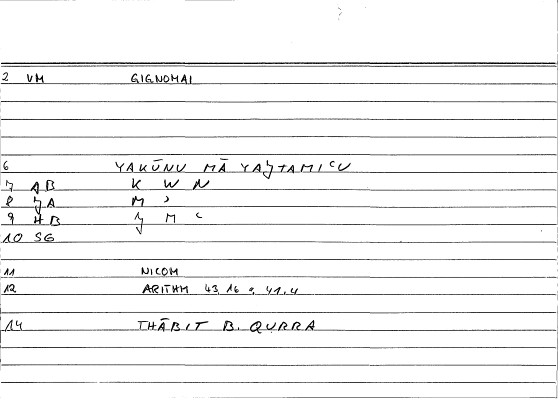 2 VM GIGNOMAI
6 YAKŪNU MĀ YAƷTAMIʿU
7 AB K W N
8 ƷA M ʾ
9 HB Ʒ M ʿ
10 SG
11 NICOM
12 ARITHM 43,16 41,4
14 THĀBIT B. QURRA